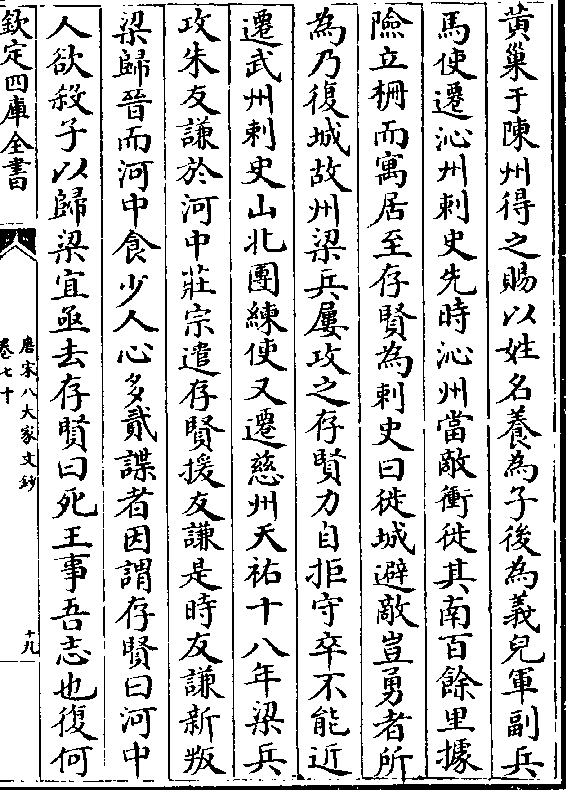 黄巢于陳州得之賜以姓名養為子後為義兒軍副兵
馬使遷沁州刺史先時沁州當敵衝徙其南百餘里據
險立柵而寓居至存賢為刺史曰徙城避敵豈勇者所
為乃復城故州梁兵屢攻之存賢力自拒守卒不能近
遷武州刺史山北團練使又遷慈州天祐十八年梁兵
攻朱友謙於河中莊宗遣存賢援友謙是時友謙新叛
梁歸晉而河中食少人心多貳諜者因謂存賢曰河中
人欲殺子以歸梁宜亟去存賢曰死王事吾志也復何
欽定四庫全書
唐宋八大家文鈔
卷七十
十九